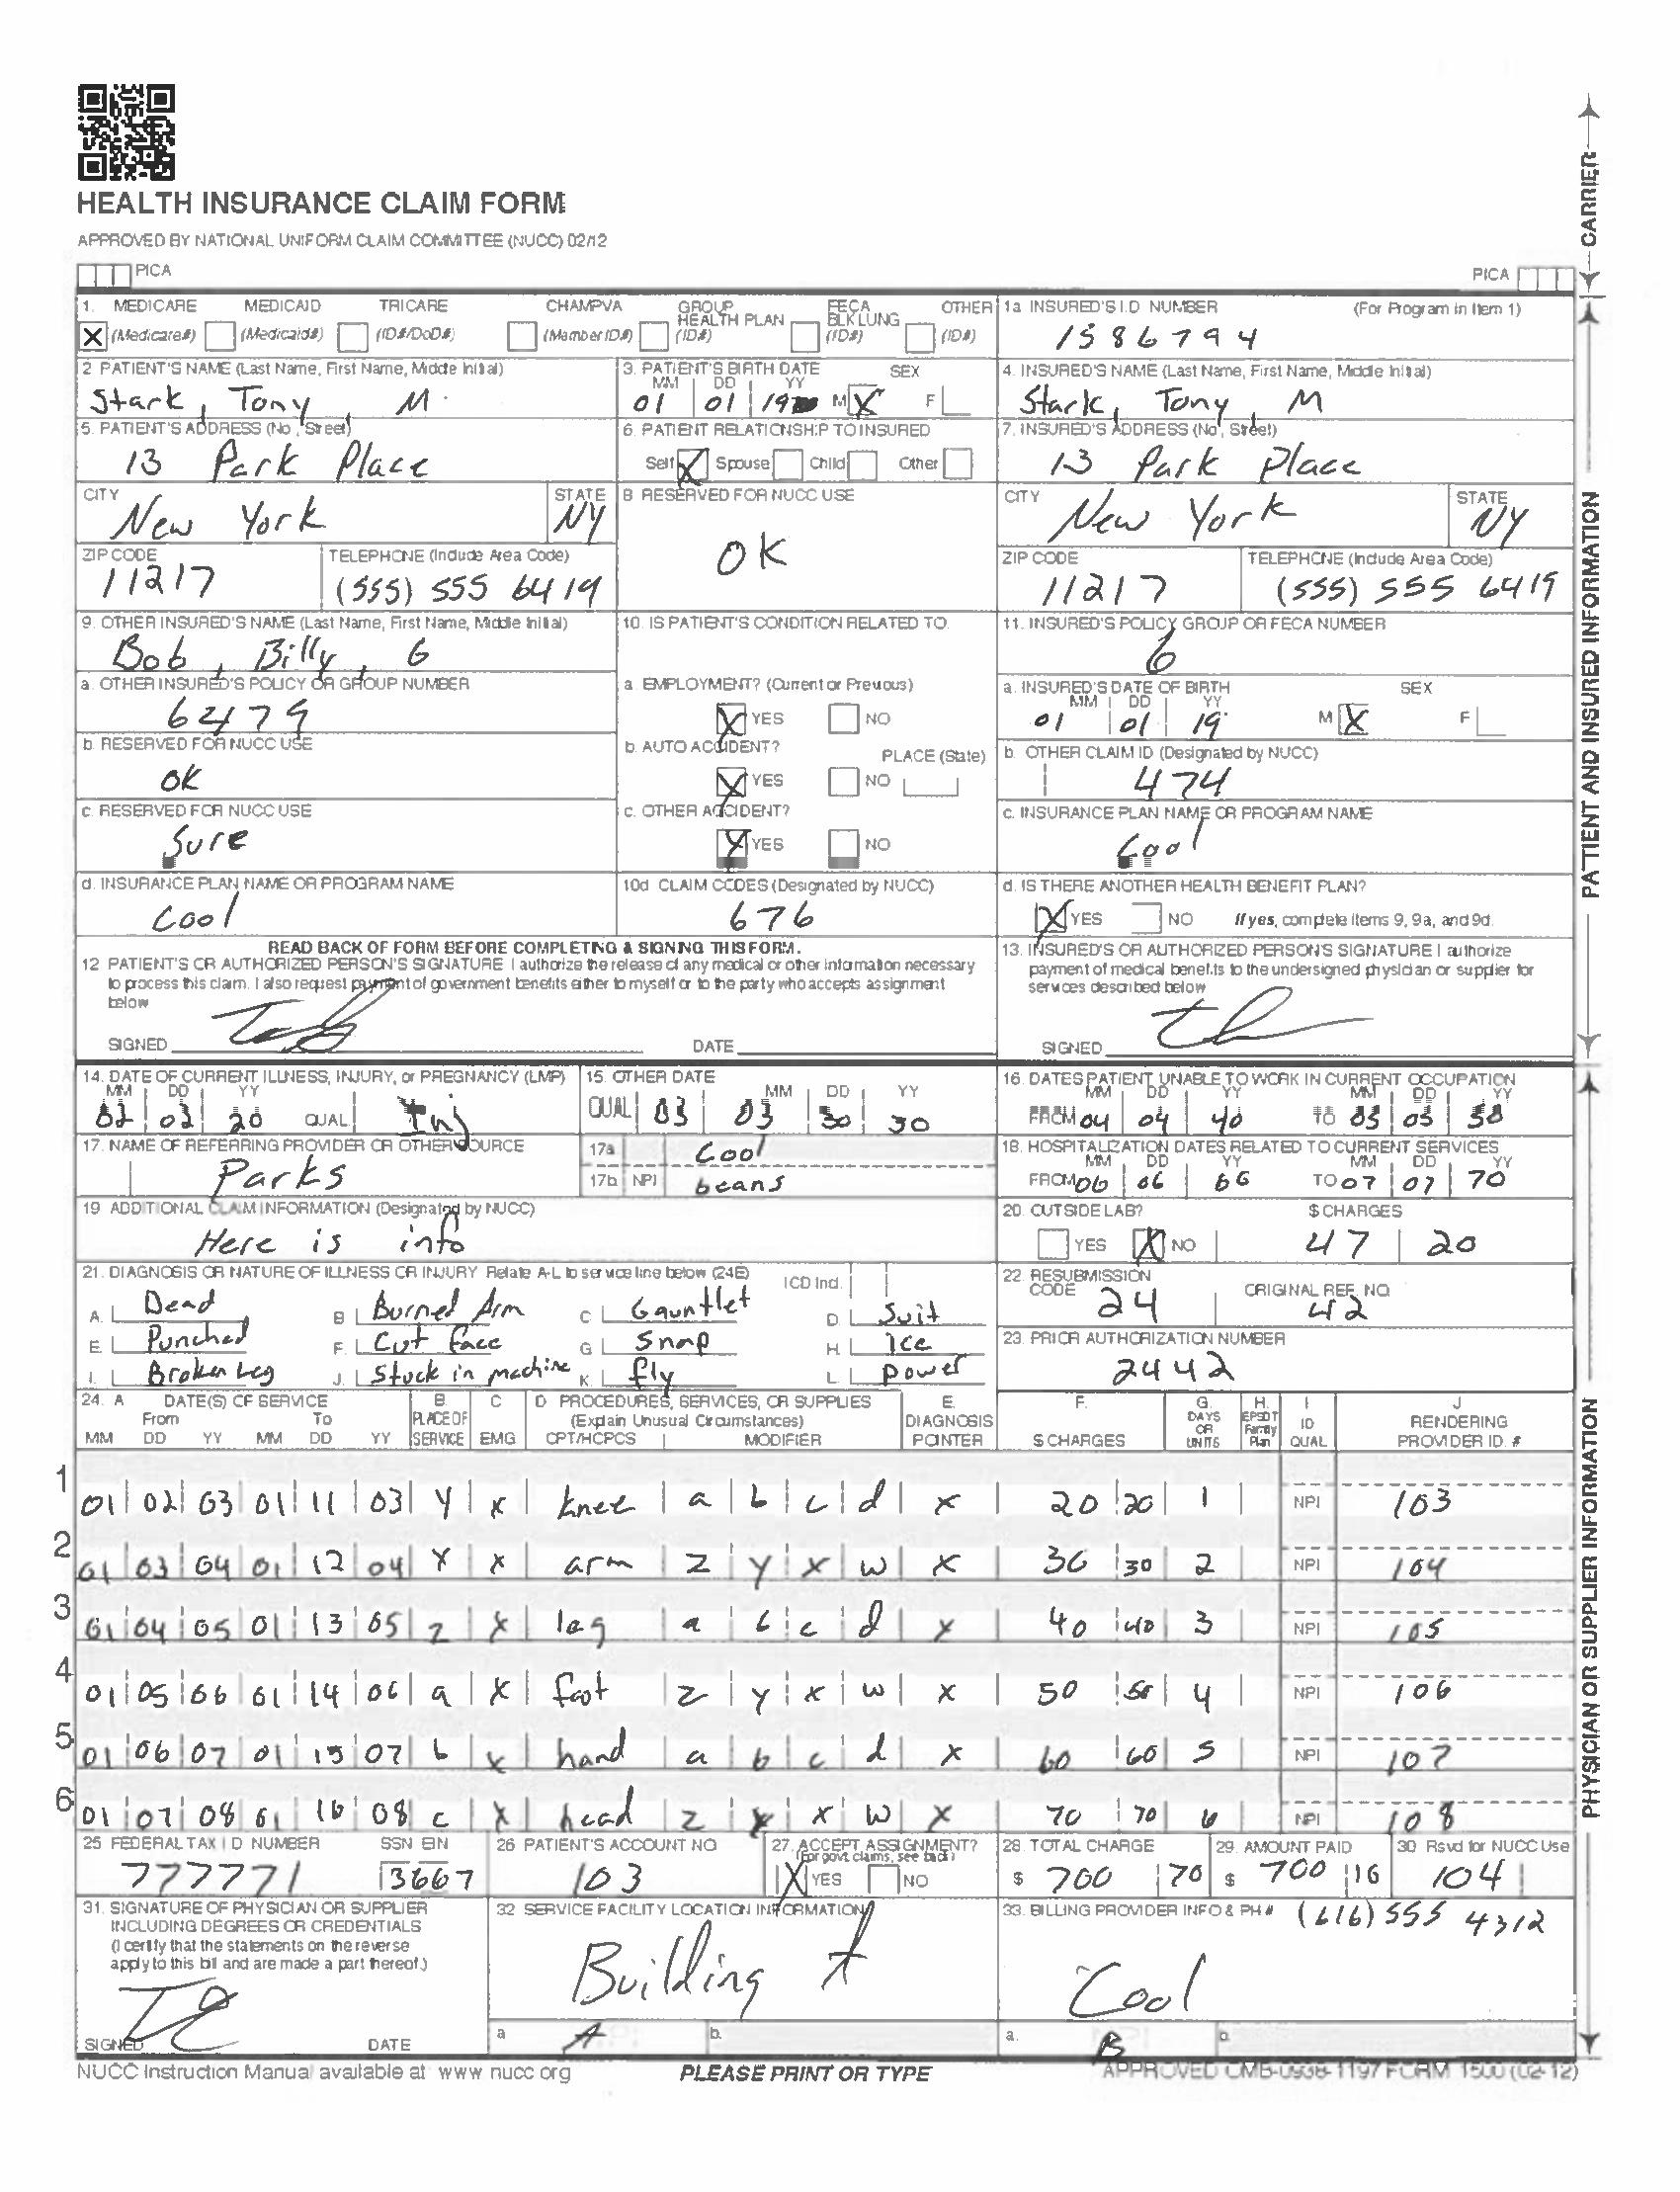 HEALTH INSURANCE CLAIM FORM
APPROVED BY NATIONAL UNIFORM CLAIM COMMITTEE (NUCC) 02/12
PICA PICA
CARRIER
1. MEDICARE MEDICAID TRICARE CHAMPVA GROUP HEALTH PLAN FECA BLK LUNG OTHER
X (Medicare#) (Medicaid#) (ID#/DoD#) (Member ID#) (ID#) (ID#) (ID#)
1a INSURED'S I.D NUMBER (For Program in Item 1)
1586794
2 PATIENT'S NAME (Last Name, First Name, Middle Initial)
Stark, Tony, M
3. PATIENT'S BIRTH DATE SEX
MM DD YY
01 01 19 M X F
4. INSURED'S NAME (Last Name, First Name, Middle Initial)
Stark, Tony, M
5. PATIENT'S ADDRESS (No, Street)
13 Park Place
6. PATIENT RELATIONSHIP TO INSURED
Self X Spouse Child Other
7. INSURED'S ADDRESS (No, Street)
13 Park Place
CITY STATE
New York NY
8 RESERVED FOR NUCC USE
OK
CITY STATE
New York NY
ZIP CODE TELEPHONE (Include Area Code)
11217 (555) 555 6419
ZIP CODE TELEPHONE (Include Area Code)
11217 (555) 555 6419
9. OTHER INSURED'S NAME (Last Name, First Name, Middle Initial)
Bob, Billy, G
10. IS PATIENT'S CONDITION RELATED TO
11. INSURED'S POLICY GROUP OR FECA NUMBER
6
a. OTHER INSURED'S POLICY OR GROUP NUMBER
6479
a. EMPLOYMENT? (Current or Previous)
X YES NO
a. INSURED'S DATE OF BIRTH SEX
MM DD YY
01 01 19 M X F
b. RESERVED FOR NUCC USE
OK
b. AUTO ACCIDENT? PLACE (State)
X YES NO
b. OTHER CLAIM ID (Designated by NUCC)
474
c. RESERVED FOR NUCC USE
Sure
c. OTHER ACCIDENT?
X YES NO
c. INSURANCE PLAN NAME OR PROGRAM NAME
Cool
d. INSURANCE PLAN NAME OR PROGRAM NAME
Cool
10d CLAIM CODES (Designated by NUCC)
676
d. IS THERE ANOTHER HEALTH BENEFIT PLAN?
X YES NO If yes, complete items 9, 9a, and 9d.
PATIENT AND INSURED INFORMATION
READ BACK OF FORM BEFORE COMPLETING & SIGNING THIS FORM.
12 PATIENT'S OR AUTHORIZED PERSON'S SIGNATURE I authorize the release of any medical or other information necessary
to process this claim. I also request payment of government benefits either to myself or to the party who accepts assignment
below
SIGNED DATE
13. INSURED'S OR AUTHORIZED PERSON'S SIGNATURE I authorize
payment of medical benefits to the undersigned physician or supplier for
services described below
SIGNED
14. DATE OF CURRENT ILLNESS, INJURY, or PREGNANCY (LMP)
MM DD YY
02 02 20 QUAL. Inj
15. OTHER DATE
MM DD YY
QUAL 03 03 30 30
16. DATES PATIENT UNABLE TO WORK IN CURRENT OCCUPATION
MM DD YY MM DD YY
FROM 04 04 40 TO 05 05 50
17. NAME OF REFERRING PROVIDER OR OTHER SOURCE
Parks
17a Cool
17b NPI beans
18. HOSPITALIZATION DATES RELATED TO CURRENT SERVICES
MM DD YY MM DD YY
FROM 06 06 66 TO 07 07 70
19 ADDITIONAL CLAIM INFORMATION (Designated by NUCC)
Here is info
20. OUTSIDE LAB? $ CHARGES
YES X NO 47 20
21. DIAGNOSIS OR NATURE OF ILLNESS OR INJURY Relate A-L to service line below (24E) ICD Ind.
A. Dead B Burned Arm C Gauntlet D. Suit
E. Punched F. Cut face G Snap H. Ice
I. Broken Leg J. Stuck in machine K. fly L. power
22. RESUBMISSION CODE ORIGINAL REF. NO.
24 42
23. PRIOR AUTHORIZATION NUMBER
2442
24. A DATE(S) OF SERVICE B. C D PROCEDURES, SERVICES, OR SUPPLIES E. F. G. H. I J
From To PLACE OF (Explain Unusual Circumstances) DIAGNOSIS DAYS OR UNITS EPSDT Family Plan ID QUAL RENDERING
MM DD YY MM DD YY SERVICE EMG CPT/HCPCS MODIFIER POINTER $ CHARGES PROVIDER ID. #
1 01 02 03 01 11 03 y x knee a b c d x 20 20 1 NPI 103
2 01 03 04 01 12 04 x x arm z y x w x 30 30 2 NPI 104
3 01 04 05 01 13 05 z x leg a b c d x 40 40 3 NPI 105
4 01 05 06 01 14 06 a x foot z y x w x 50 50 4 NPI 106
5 01 06 07 01 15 07 b x hand a b c d x 60 60 5 NPI 107
6 01 07 08 01 16 08 c x head z y x w x 70 70 6 NPI 108
25 FEDERAL TAX I D NUMBER SSN EIN
777771 3667
26 PATIENT'S ACCOUNT NO
103
27. ACCEPT ASSIGNMENT?
(For govt. claims, see back)
X YES NO
28. TOTAL CHARGE
$ 700 70
29. AMOUNT PAID
$ 700 16
30 Rsvd for NUCC Use
104
31. SIGNATURE OF PHYSICIAN OR SUPPLIER
INCLUDING DEGREES OR CREDENTIALS
(I certify that the statements on the reverse
apply to this bill and are made a part thereof.)
SIGNED DATE
32 SERVICE FACILITY LOCATION INFORMATION
Building A
a A b.
33. BILLING PROVIDER INFO & PH # (616) 555 4312
Cool
a. B b.
PHYSICIAN OR SUPPLIER INFORMATION
NUCC Instruction Manual available at www nucc org PLEASE PRINT OR TYPE APPROVED OMB-0938-1197 FORM 1500 (02-12)